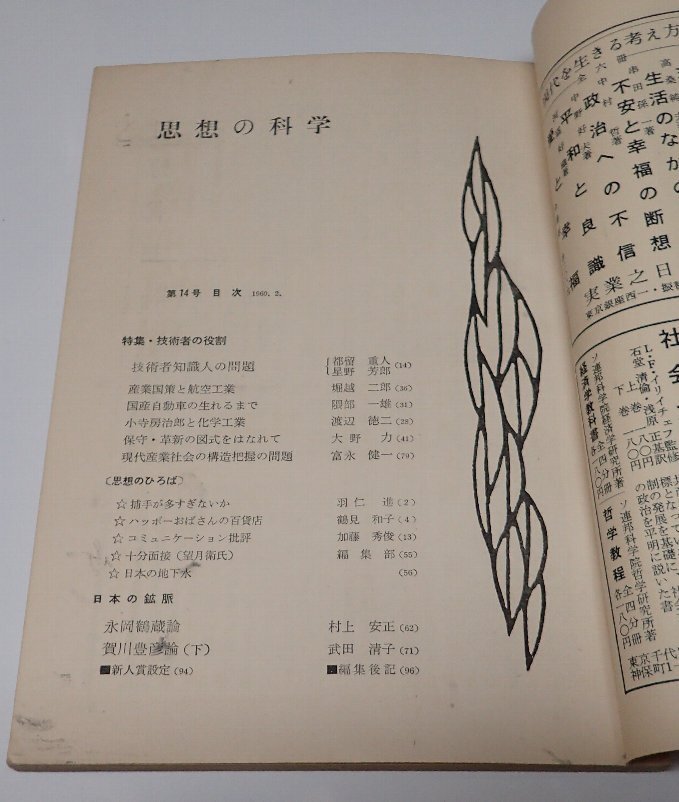 思想の科学
第14号 目次 1960. 2.
特集・技術者の役割
技術者知識人の問題 都留 重人 星野 芳郎 (14)
産業国策と航空工業 堀越 二郎 (36)
国産自動車の生れるまで 隈部 一雄 (31)
小寺房治郎と化学工業 渡辺 徳二 (28)
保守・革新の図式をはなれて 大野 力 (41)
現代産業社会の構造把握の問題 富永 健一 (79)
〔思想のひろば〕
☆ 捕手が多すぎないか 羽仁 進 (2)
☆ ハッポーおばさんの百貨店 鶴見 和子 (4)
☆ コミュニケーション批評 加藤 秀俊 (13)
☆ 十分面接(望月衛氏) 編集部 (55)
☆ 日本の地下水 (56)
日本の鉱脈
永岡鶴蔵論 村上 安正 (62)
賀川豊彦論(下) 武田 清子 (71)
■新人賞設定 (94) ■編集後記 (96)
現代を生きる考え方
全六冊
串田孫一著
不安と幸福の断想
中村 哲著
政治への不信
中野好夫著
平和と良識
実業之日
東京銀座西一・振替
社会
L・F・イリイチェフ監修
石堂清倫・浅原正基訳
上巻 一八〇円
下巻 一八〇円
ソ連邦科学院経済学研究所著
経済学教科書 全四分冊 各一八〇円
の政治を平明に説いた書
制の発展を基礎に、
ソ連邦科学院哲学研究所著
哲学教程 全四分冊 各一八〇円
東京千代
神保町1-